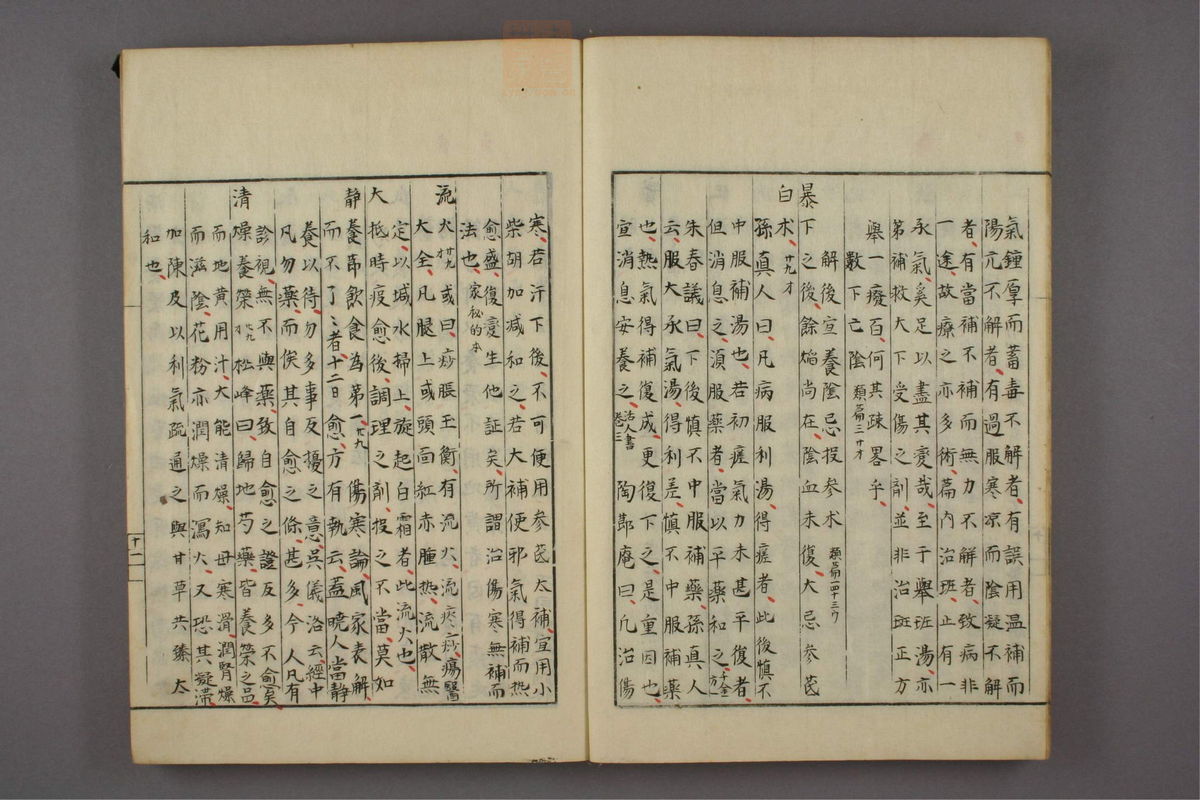 氣鐘厚而蓄毒不解者有誤用温補而
陽亢不解者有過服寒凉而陰凝不解
者有當補不補而無力不解者致病非
一途故療之亦多術篇内治班止有一
承氣奚足以盡其変哉至于舉班湯亦
第補救大下受傷之劑並非治班正方
舉一癈百何其疎畧乎
數下亡陰 類篇三十才
暴
解後宣養陰忌投参术 類篇一四十三ウ
下之後餘焔尚在陰血未復大忌参芪
白术 廿九才
孫真人曰凡病服利湯得瘥者此後慎不
中服補湯也若初瘥氣力未甚平復者
但消息之須服藥者當以平藥和之 千金方一
朱春議曰下後慎不中服補藥孫真人
云服大承氣湯得利差慎不中服補藥
也熱氣得補復成更復下之是重因也
宣消息安養之 活人書卷三 陶節庵曰凢治傷
寒若汗下後不可便用参芪太補宜用小
柴胡加减和之若大補便邪氣得補而热
愈盛復变生他証矣所謂治傷寒無補而
法也 家秘的本
流火 廿九 或曰痧脹玉衡有流火流痰痧瘍醫
大全凡腿上或頭面紅赤腫热流散無
定以堿水掃上旋起白霜者此流火也
大抵時疫愈後調理之劑投之不當莫如
静養節飲食為第一 廿九 傷寒論風家表解
而不了々者十二日愈方有執云盖曉人當静
養以待勿多事反擾之意呉儀洛云經中
凡勿藥而俟其自愈之條甚多今人凡有
診視無不與藥致自愈之證反多不愈矣
清燥養榮 九才 松峰曰歸地芍藥皆養榮之品
而地黄用汁大能清燥知母寒滑潤腎燥
而滋陰花粉亦潤燥而瀉火又恐其凝滞
加陳皮以利氣疏通之與甘草共臻太
和也
十一